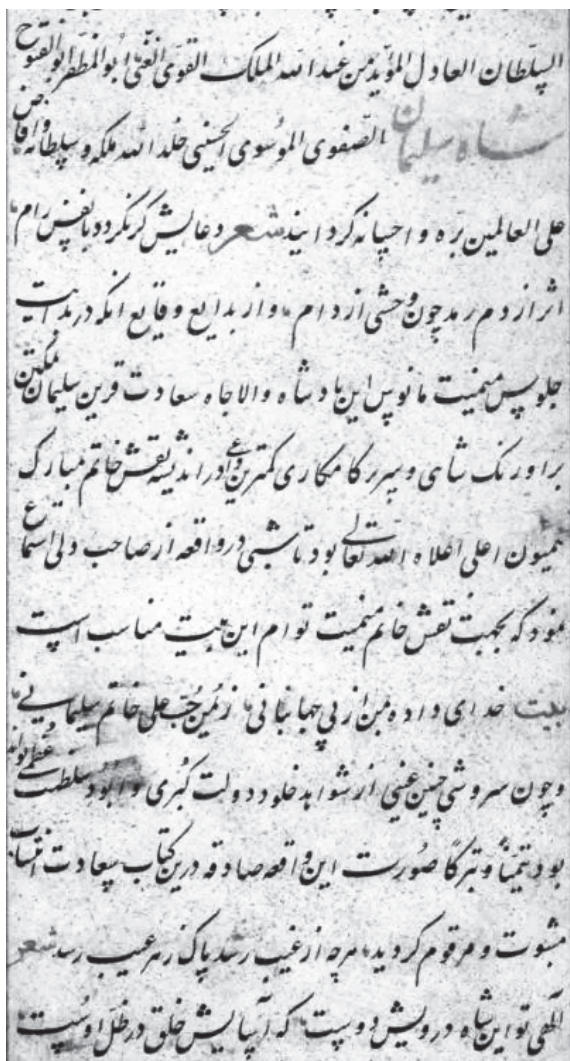 السلطان العادل المؤید من عند الله الملک القوی الغنی ابو المظفر ابو الفتوح
شاه سلیمان الصفوی الموسوی الحسینی خلد الله ملکه و سلطانه و افاض
علی العالمین بره و احسانه کردانیده شعر دعایش کر نکردد با نفس رام
اثر از دم رمد چون وحشی از دام و از بدایع وقایع انکه در بدایت
جلوس میمنت مانوس این پادشاه والاجاه سعادت قرین سلیمان مکین
بر اورنک شاهی و سریر کامکاری کمترین داعی در اندیشه نقش خاتم مبارک
همیون اعلی اعلاه الله تعالی بود تا شبی در واقعه از صاحب دلی استماع
نمود که بجهت نقش خاتم میمنت توام این بیت مناسب است
بیت خدای داده بمن از پی جهانبانی ز یمن حب علی خاتم سلیمانی
و چون سروشی چنین غیبی از شواهد خلود دولت کبری و ابود سلطنت عظمی تواند
بود تیمناً و تبرکاً صورت این واقعه صادقه درین کتاب سعادت انتساب
مثبوت و مرقوم کردید هرچه از غیب رسد پاک ز هر عیب رسد شعر
الهی تو این شاه درویش دوست که آسایش خلق در ظل اوست